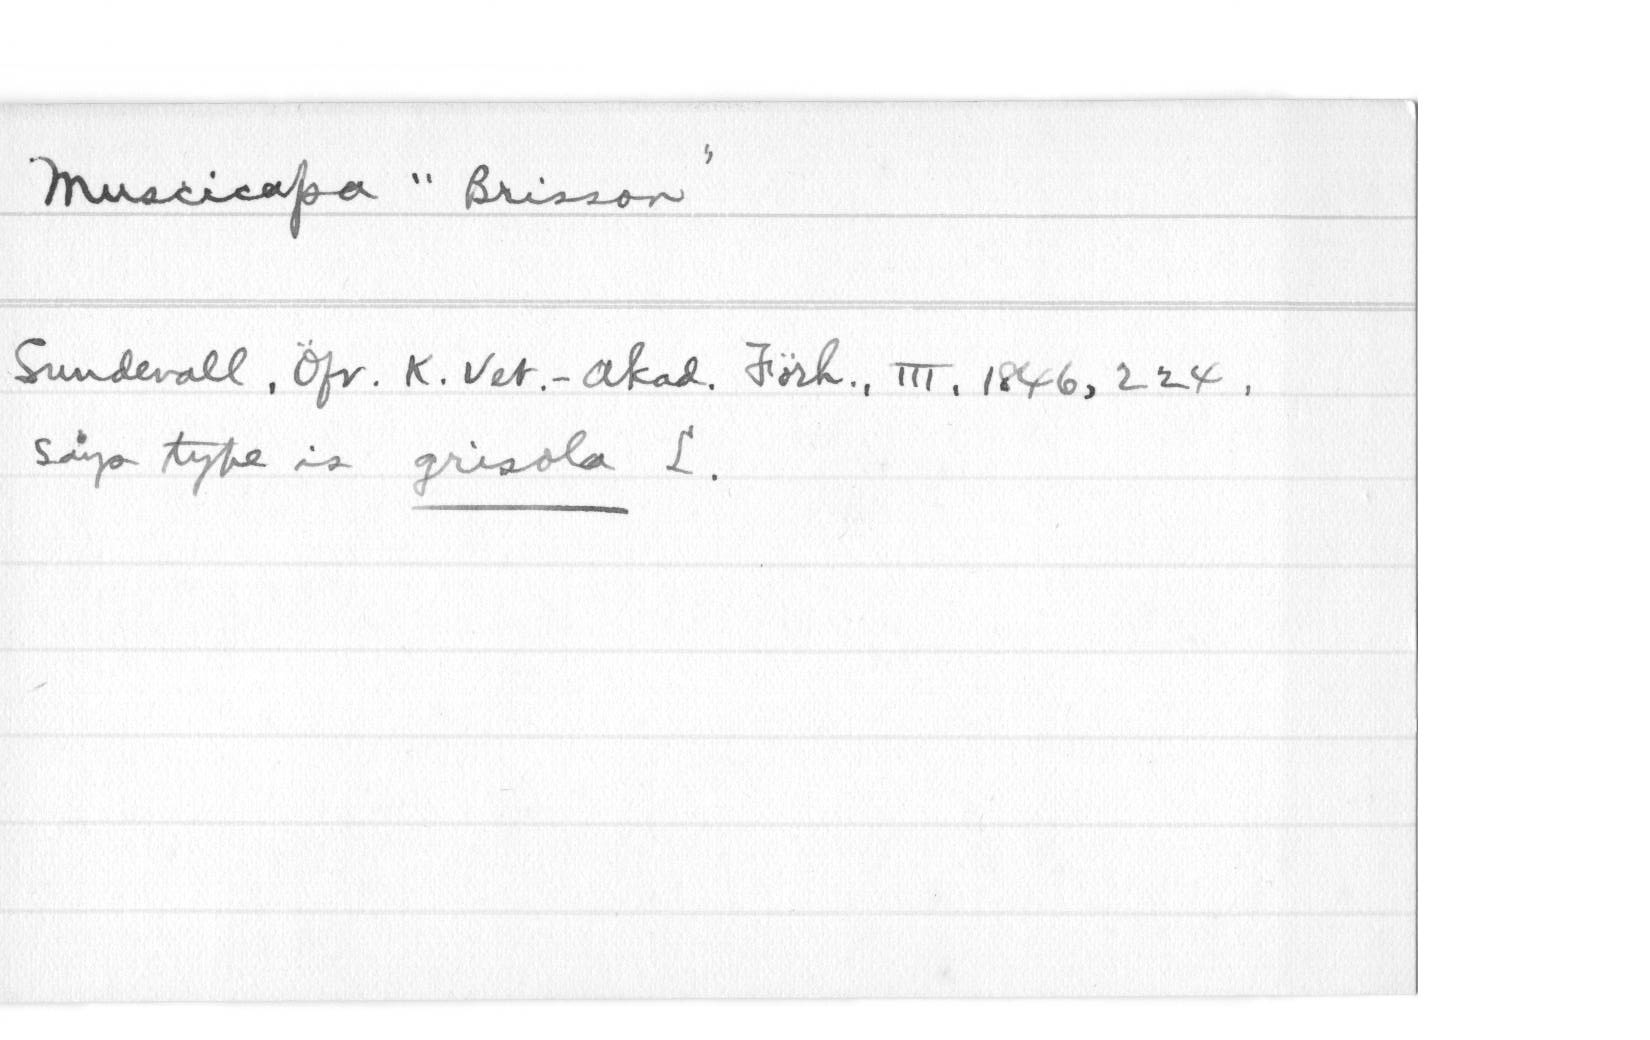 Muscicapa "Brisson"
Sundevall, Öfv. K. Vet.-Akad. Förh., III, 1846, 224,
says type is grisola L.